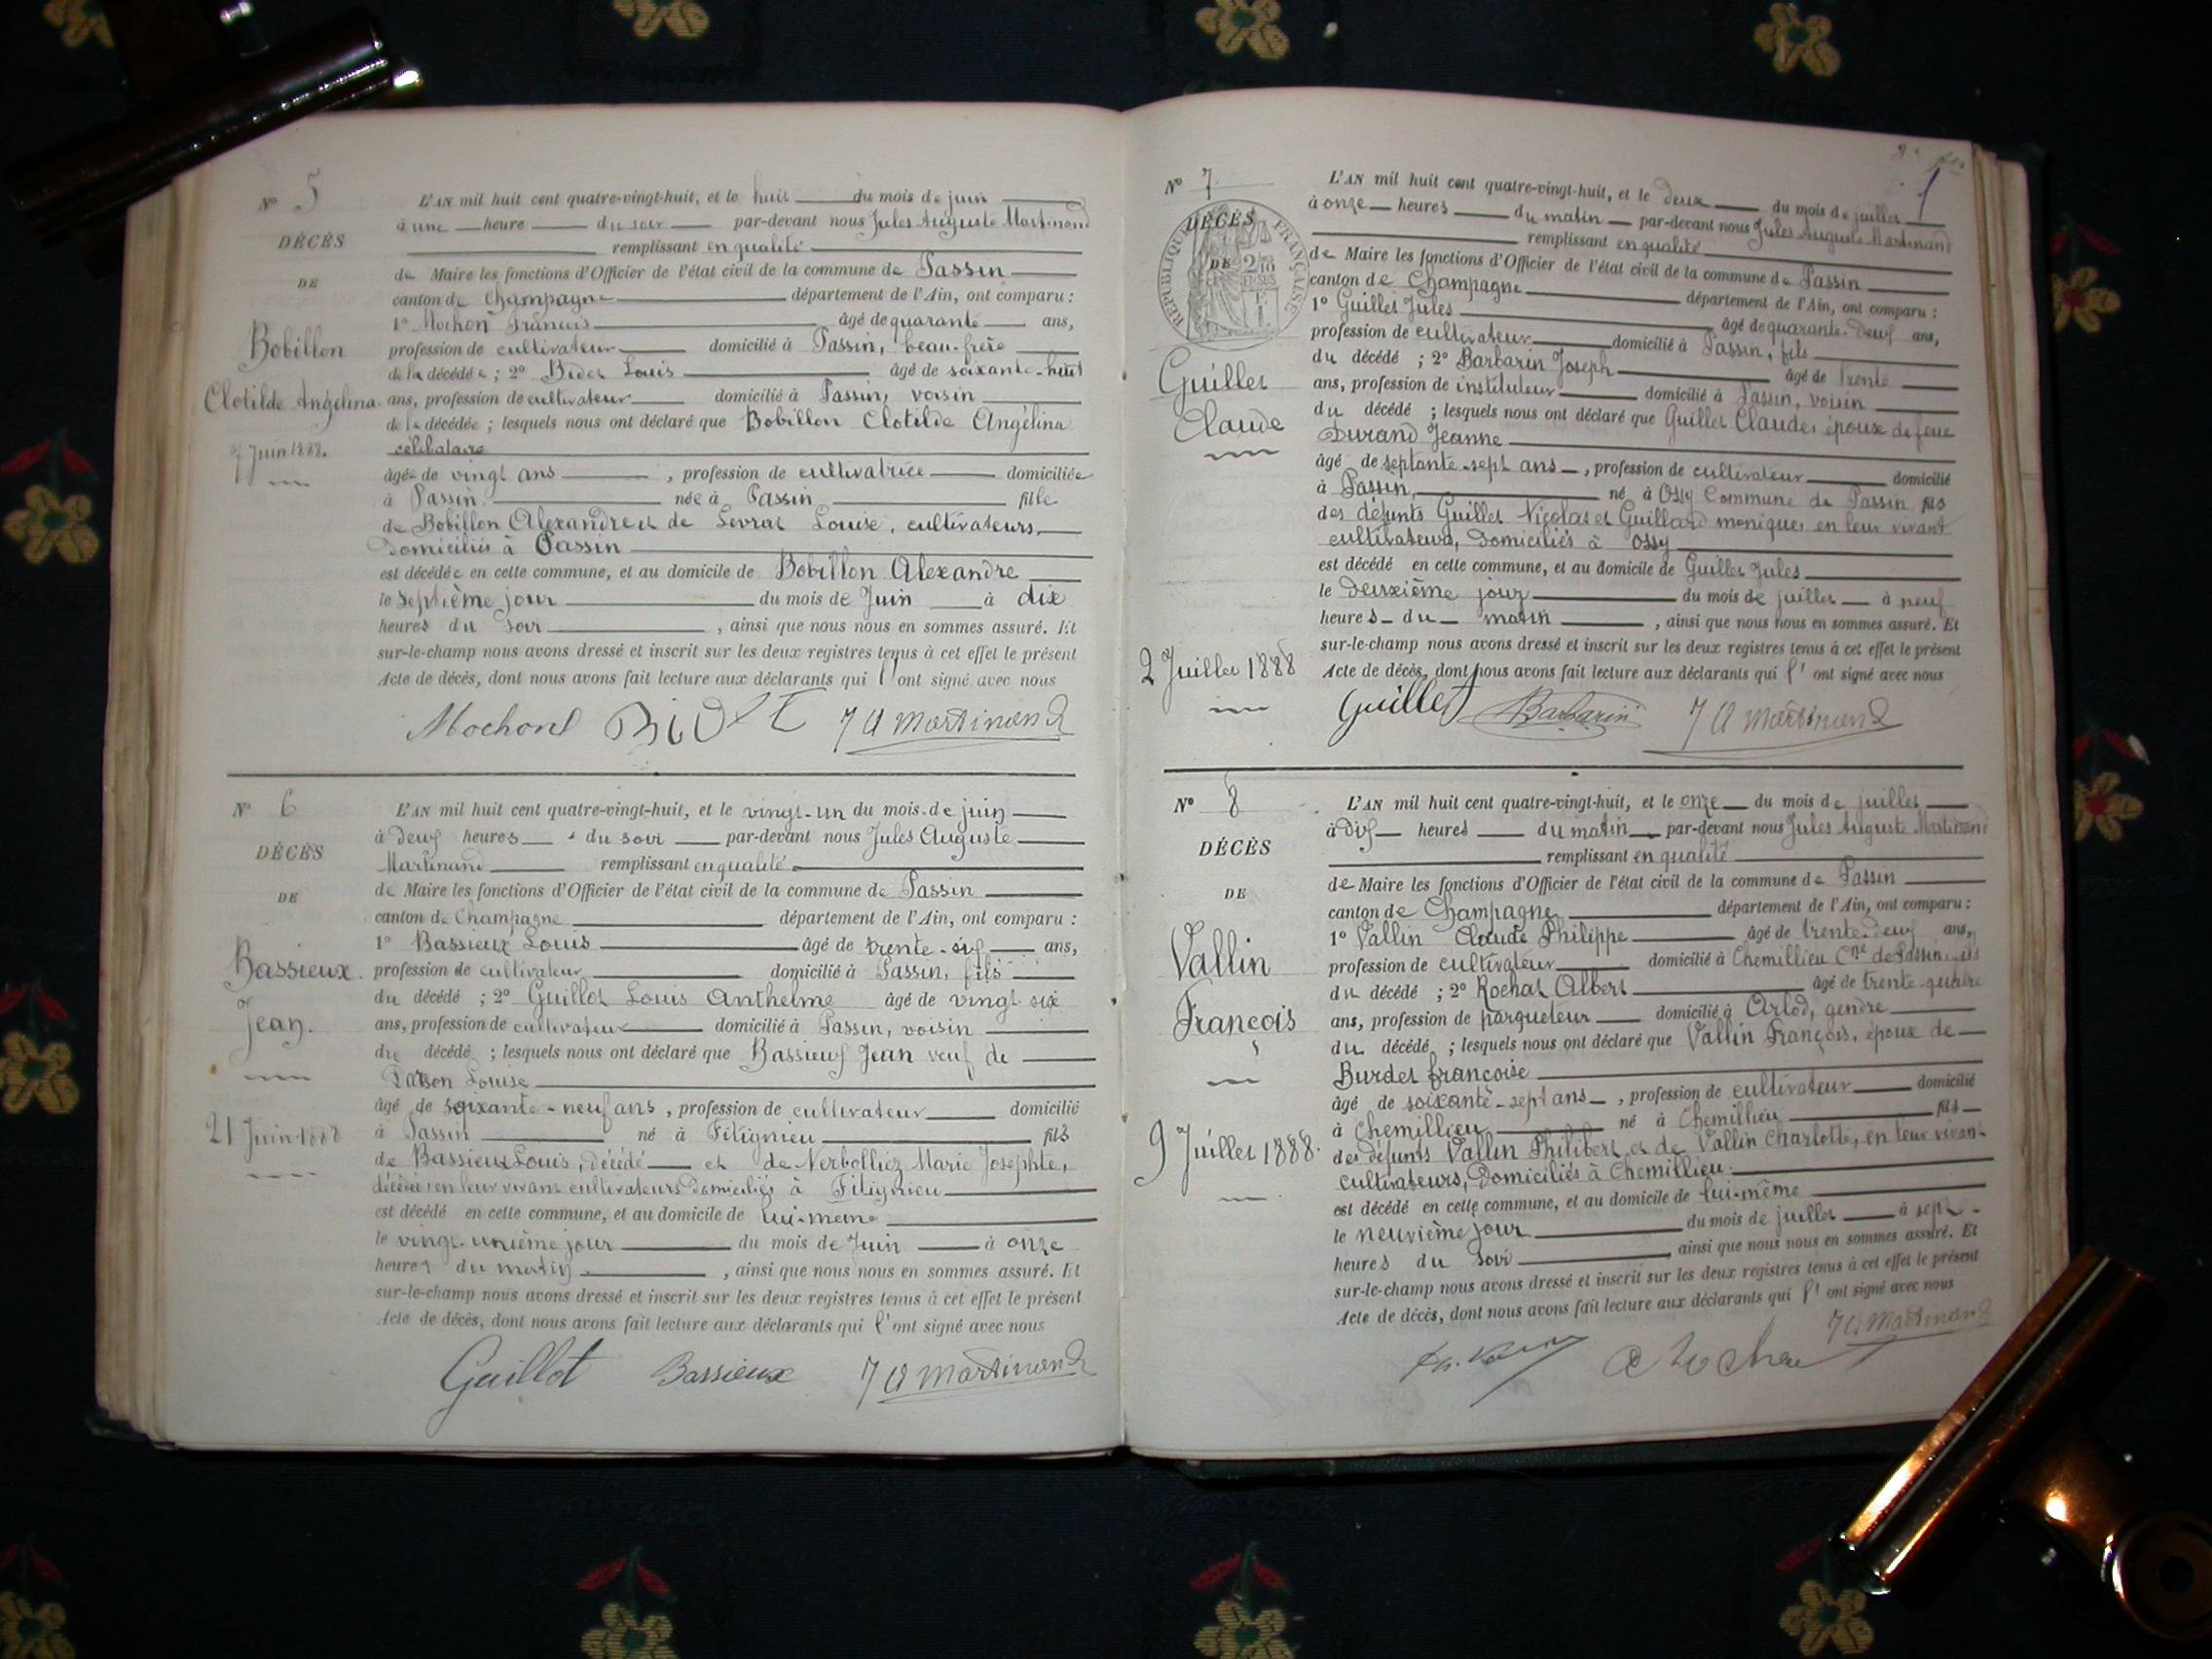 N° 5
DÉCÈS
DE
Bobillon
Clotilde Angélina
7 Juin 1888.
L'AN mil huit cent quatre-vingt-huit, et le huit du mois de juin
à une heure du soir par-devant nous Jules Auguste Martinand
remplissant en qualité
de Maire les fonctions d'Officier de l'état civil de la commune de Passin
canton de Champagne département de l'Ain, ont comparu :
1° Mochon François âgé de quarante ans,
profession de cultivateur domicilié à Passin, beau-frère
de la décédée ; 2° Bidet Louis âgé de soixante-huit
ans, profession de cultivateur domicilié à Passin, voisin
de la décédée ; lesquels nous ont déclaré que Bobillon Clotilde Angélina
célibataire
âgée de vingt ans , profession de cultivatrice domiciliée
à Passin née à Passin fille
de Bobillon Alexandre et de Levrat Louise, cultivateurs,
domiciliés à Passin
est décédée en cette commune, et au domicile de Bobillon Alexandre
le septième jour du mois de Juin à dix
heures du soir , ainsi que nous nous en sommes assuré. Et
sur-le-champ nous avons dressé et inscrit sur les deux registres tenus à cet effet le présent
Acte de décès, dont nous avons fait lecture aux déclarants qui l'ont signé avec nous
Mochon Bidet J A Martinand
N° 6
DÉCÈS
DE
Bassieux
Jean.
21 Juin 1888
L'AN mil huit cent quatre-vingt-huit, et le vingt-un du mois de juin
à deux heures du soir par-devant nous Jules Auguste
Martinand remplissant en qualité
de Maire les fonctions d'Officier de l'état civil de la commune de Passin
canton de Champagne département de l'Ain, ont comparu :
1° Bassieux Louis âgé de trente-six ans,
profession de cultivateur domicilié à Passin, fils
du décédé ; 2° Guillot Louis Anthelme âgé de vingt six
ans, profession de cultivateur domicilié à Passin, voisin
du décédé ; lesquels nous ont déclaré que Bassieux Jean veuf de
Louise
âgé de soixante-neuf ans , profession de cultivateur domicilié
à Passin né à Fitignieu fils
de Bassieux Louis, décédé et de Marie Josephte,
en leur vivant cultivateurs domiciliés à Fitignieu
est décédé en cette commune, et au domicile de lui-même
le vingt-unième jour du mois de Juin à onze
heures du matin , ainsi que nous nous en sommes assuré. Et
sur-le-champ nous avons dressé et inscrit sur les deux registres tenus à cet effet le présent
Acte de décès, dont nous avons fait lecture aux déclarants qui l'ont signé avec nous
Guillot Bassieux J A Martinand
N° 7
DÉCÈS
DE
RÉPUBLIQUE FRANÇAISE
2/10 EN SUS
Guillet
Claude
2 Juillet 1888
L'AN mil huit cent quatre-vingt-huit, et le deux du mois de juillet
à onze heures du matin par-devant nous Jules Auguste Martinand
remplissant en qualité
de Maire les fonctions d'Officier de l'état civil de la commune de Passin
canton de Champagne département de l'Ain, ont comparu :
1° Guillet Jules âgé de quarante-deux ans,
profession de cultivateur domicilié à Passin, fils
du décédé ; 2° Barbarin Joseph âgé de trente
ans, profession de instituteur domicilié à Passin, voisin
du décédé ; lesquels nous ont déclaré que Guillet Claude, époux de feue
Durand Jeanne
âgé de septante-sept ans , profession de cultivateur domicilié
à Passin, né à Ossy Commune de Passin fils
des défunts Guillet Nicolas et Guillard monique, en leur vivant
cultivateurs, domiciliés à Ossy
est décédé en cette commune, et au domicile de Guillet Jules
le deuxième jour du mois de juillet à neuf
heures du matin , ainsi que nous nous en sommes assuré. Et
sur-le-champ nous avons dressé et inscrit sur les deux registres tenus à cet effet le présent
Acte de décès, dont nous avons fait lecture aux déclarants qui l' ont signé avec nous
Guillet Barbarin J A Martinand
N° 8
DÉCÈS
DE
Vallin
François
9 Juillet 1888.
L'AN mil huit cent quatre-vingt-huit, et le onze du mois de juillet
à dix heures du matin par-devant nous Jules Auguste Martinand
remplissant en qualité
de Maire les fonctions d'Officier de l'état civil de la commune de Passin
canton de Champagne département de l'Ain, ont comparu :
1° Vallin Claude Philippe âgé de trente-deux ans,
profession de cultivateur domicilié à Chemillieu Cne de Passin, fils
du décédé ; 2° Rochat Albert âgé de trente-quatre
ans, profession de parqueteur domicilié à Arlod, gendre
du décédé ; lesquels nous ont déclaré que Vallin François, époux de
Burdet françoise
âgé de soixante-sept ans , profession de cultivateur domicilié
à Chemillieu né à Chemillieu fils
des défunts Vallin Philibert et de Vallin Charlotte, en leur vivant
cultivateurs, Domiciliés à Chemillieu
est décédé en cette commune, et au domicile de lui-même
le neuvième jour du mois de juillet à sept
heures du soir ainsi que nous nous en sommes assuré. Et
sur-le-champ nous avons dressé et inscrit sur les deux registres tenus à cet effet le présent
Acte de décès, dont nous avons fait lecture aux déclarants qui l' ont signé avec nous
J A Martinand